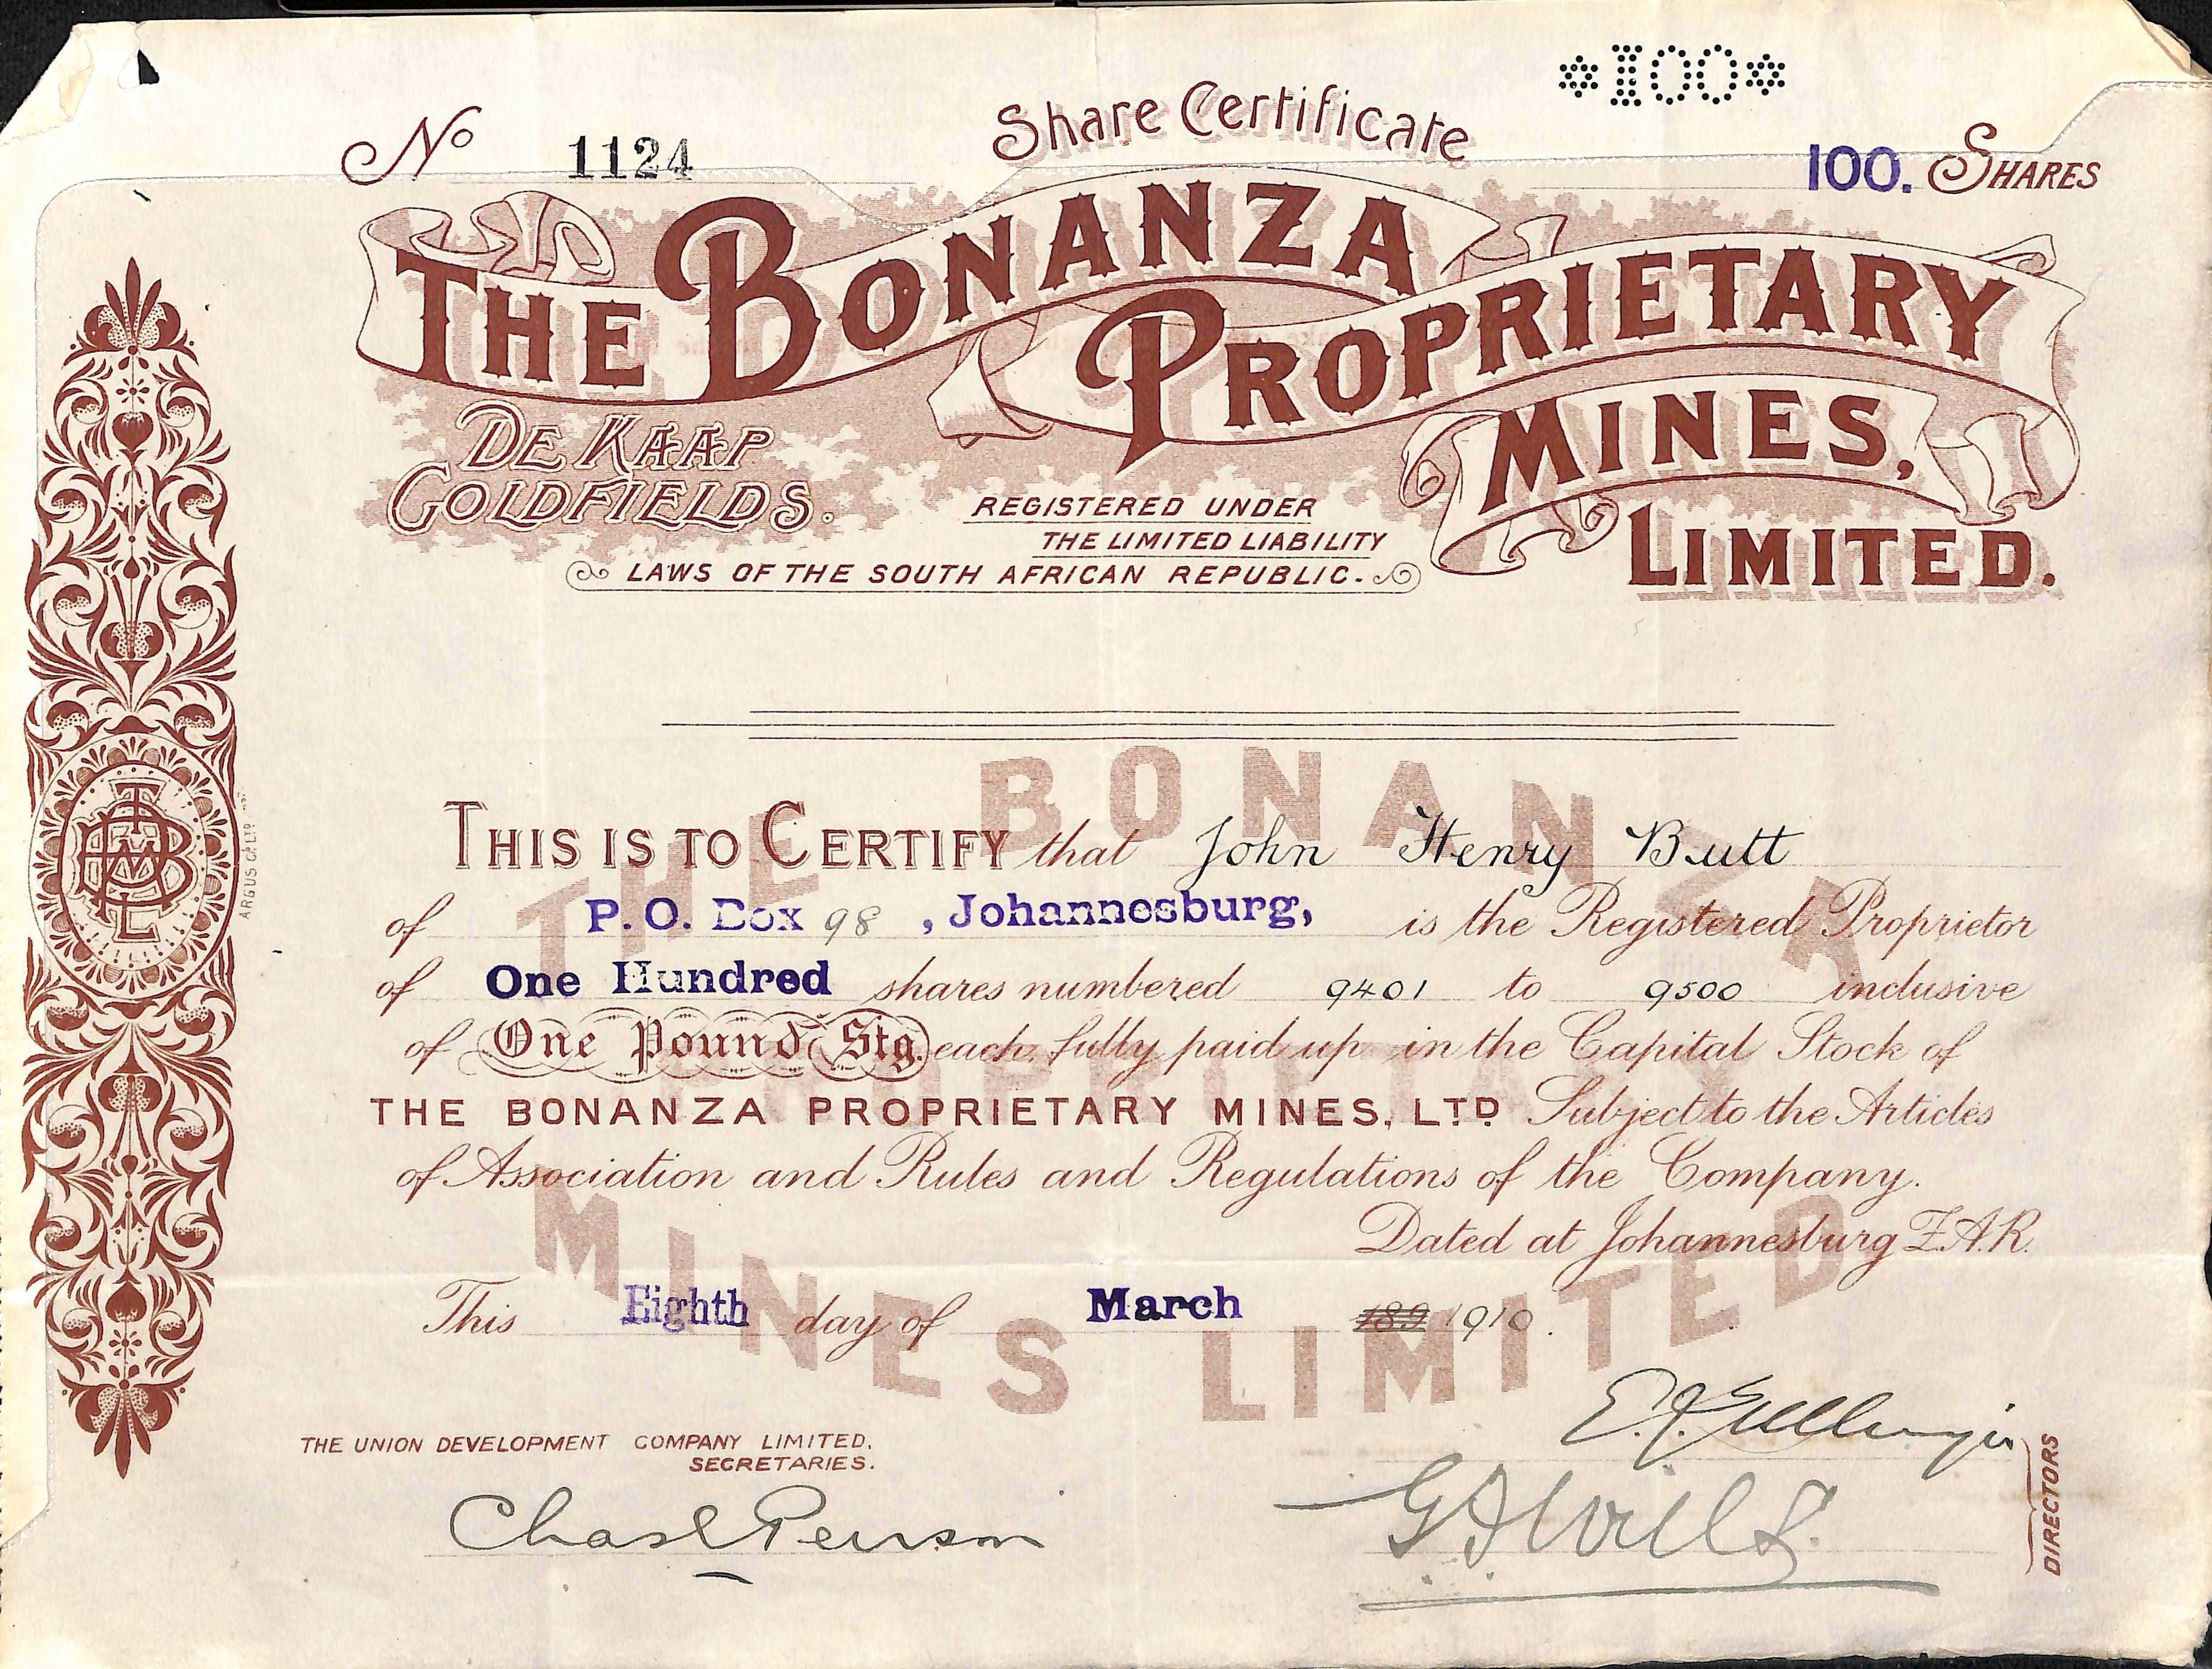 *100*
Share Certificate
No 1124
100. SHARES
THE BONANZA
PROPRIETARY
MINES,
LIMITED.
DE KAAP
GOLDFIELDS.
REGISTERED UNDER
THE LIMITED LIABILITY
LAWS OF THE SOUTH AFRICAN REPUBLIC.
THE BONANZA
PROPRIETARY
MINES LIMITED
THIS IS TO CERTIFY that John Henry Butt
of P. O. Box 98, Johannesburg, is the Registered Proprietor
of One Hundred shares numbered 9401 to 9500 inclusive
of One Pound Stg. each, fully paid up in the Capital Stock of
THE BONANZA PROPRIETARY MINES, LTD Subject to the Articles
of Association and Rules and Regulations of the Company.
Dated at Johannesburg Z.A.R.
This Eighth day of March 189 1910.
THE UNION DEVELOPMENT COMPANY LIMITED.
SECRETARIES.
DIRECTORS
ARGUS Co LTD